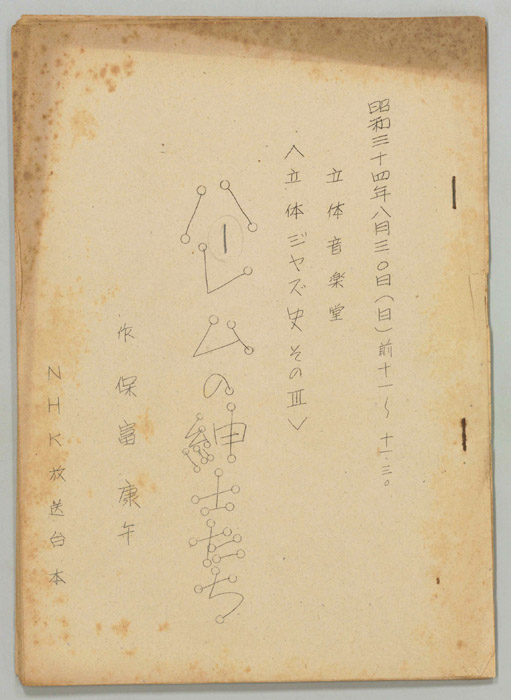 昭和三十四年八月三〇日(日)前十一~十一・三〇
立体音楽堂
<立体ジャズ史その III>
ハレムの紳士たち
1
作 保富康午
NHK放送台本